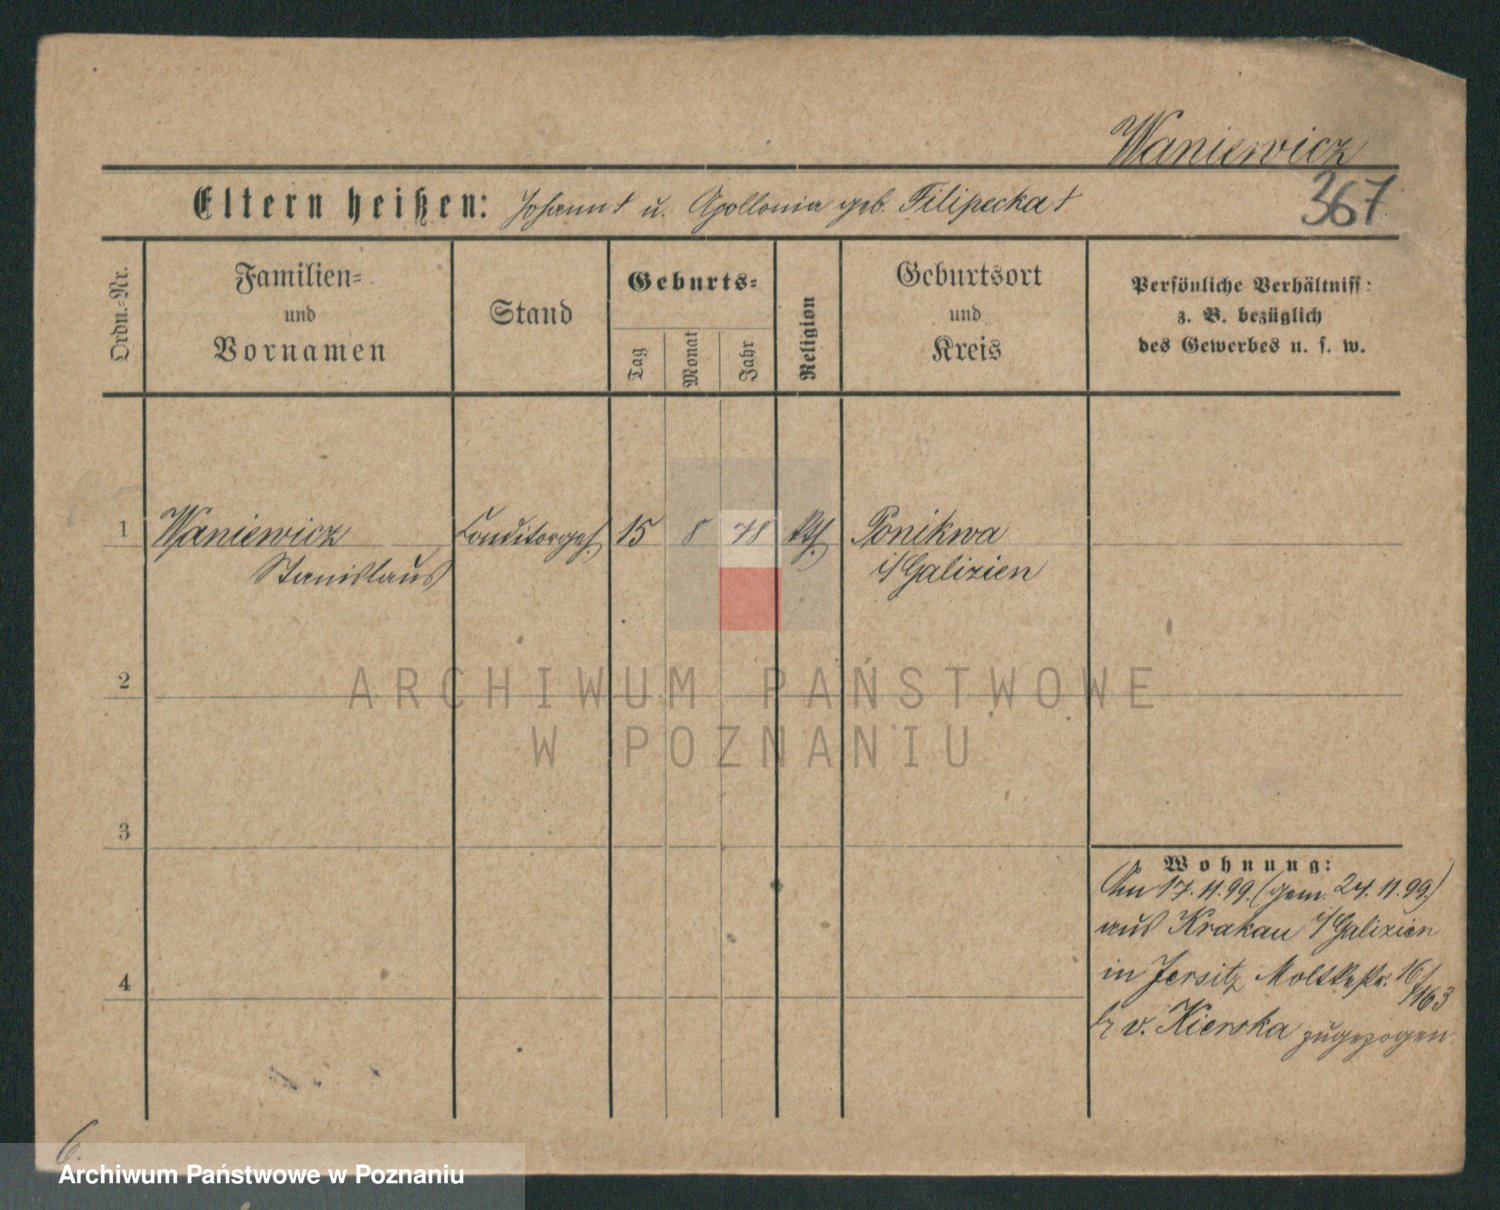 Waniewicz
367
Eltern heißen: Johann † u. Apollonia geb. Filipecka †
Ordn.-Nr.
Familien-
und
Vornamen
Stand
Geburts-
Tag
Monat
Jahr
Religion
Geburtsort
und
Kreis
Persönliche Verhältniss:
z. B. bezüglich
des Gewerbes u. s. w.
1 Waniewicz Conditorgeh. 15 8 78 kth. Ponikwa
Stanislaus i/Galizien
2
ARCHIWUM PAŃSTWOWE
W POZNANIU
3
4
Wohnung:
Am 17.11.99. (gem. 24.11.99.)
aus Krakau i/Galizien
in Jersitz Moltkestr. 16/
163
v. Kierska zugezogen.
6.
Archiwum Państwowe w Poznaniu